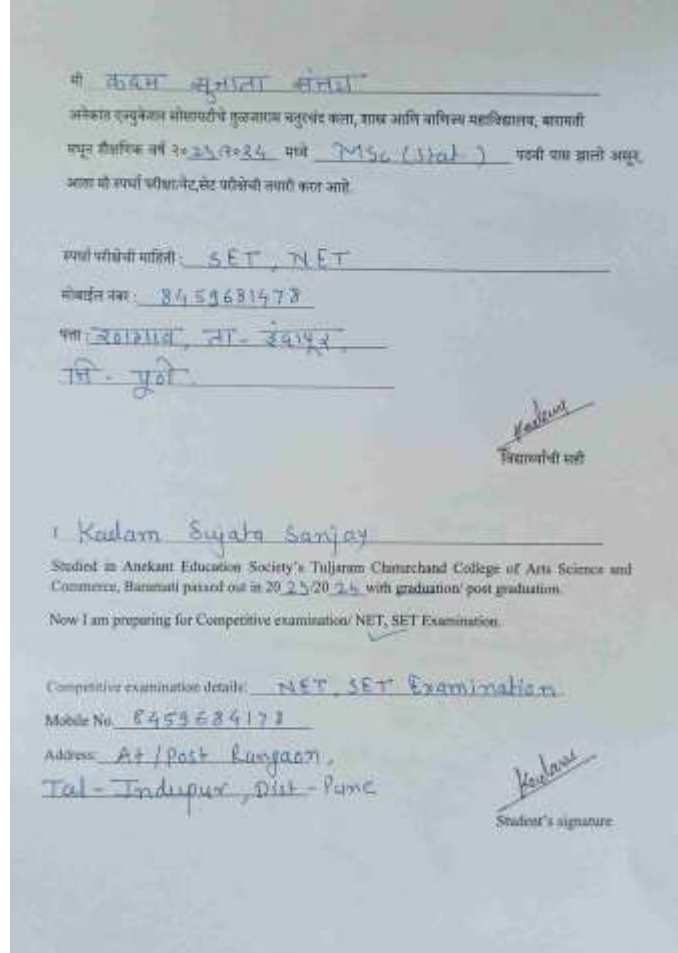 मी कदम सुजाता संजय
अनेकांत एज्युकेशन सोसायटीचे तुळजाराम चतुरचंद कला, शास्त्र आणि वाणिज्य महाविद्यालय, बारामती
मधून शैक्षणिक वर्ष २०23/२०24 मध्ये MSc (Stat.) पदवी पास झालो असून,
आता मी स्पर्धा परीक्षा/नेट,सेट परीक्षेची तयारी करत आहे.
स्पर्धा परीक्षेची माहिती: SET, NET
मोबाईल नंबर:
पत्ता: ता- इंदापूर,
जि- पुणे.
Kadam
विद्यार्थ्याची सही
I Kadam Sujata Sanjay
Studied in Anekant Education Society's Tuljaram Chaturchand College of Arts Science and
Commerce, Baramati passed out in 20 23/20 24 with graduation/ post graduation.
Now I am preparing for Competitive examination/ NET, SET Examination.
Competitive examination details: NET, SET Examination
Mobile No.
Address: At/Post
Tal- Indapur, Dist- Pune
Kadam
Student's signature